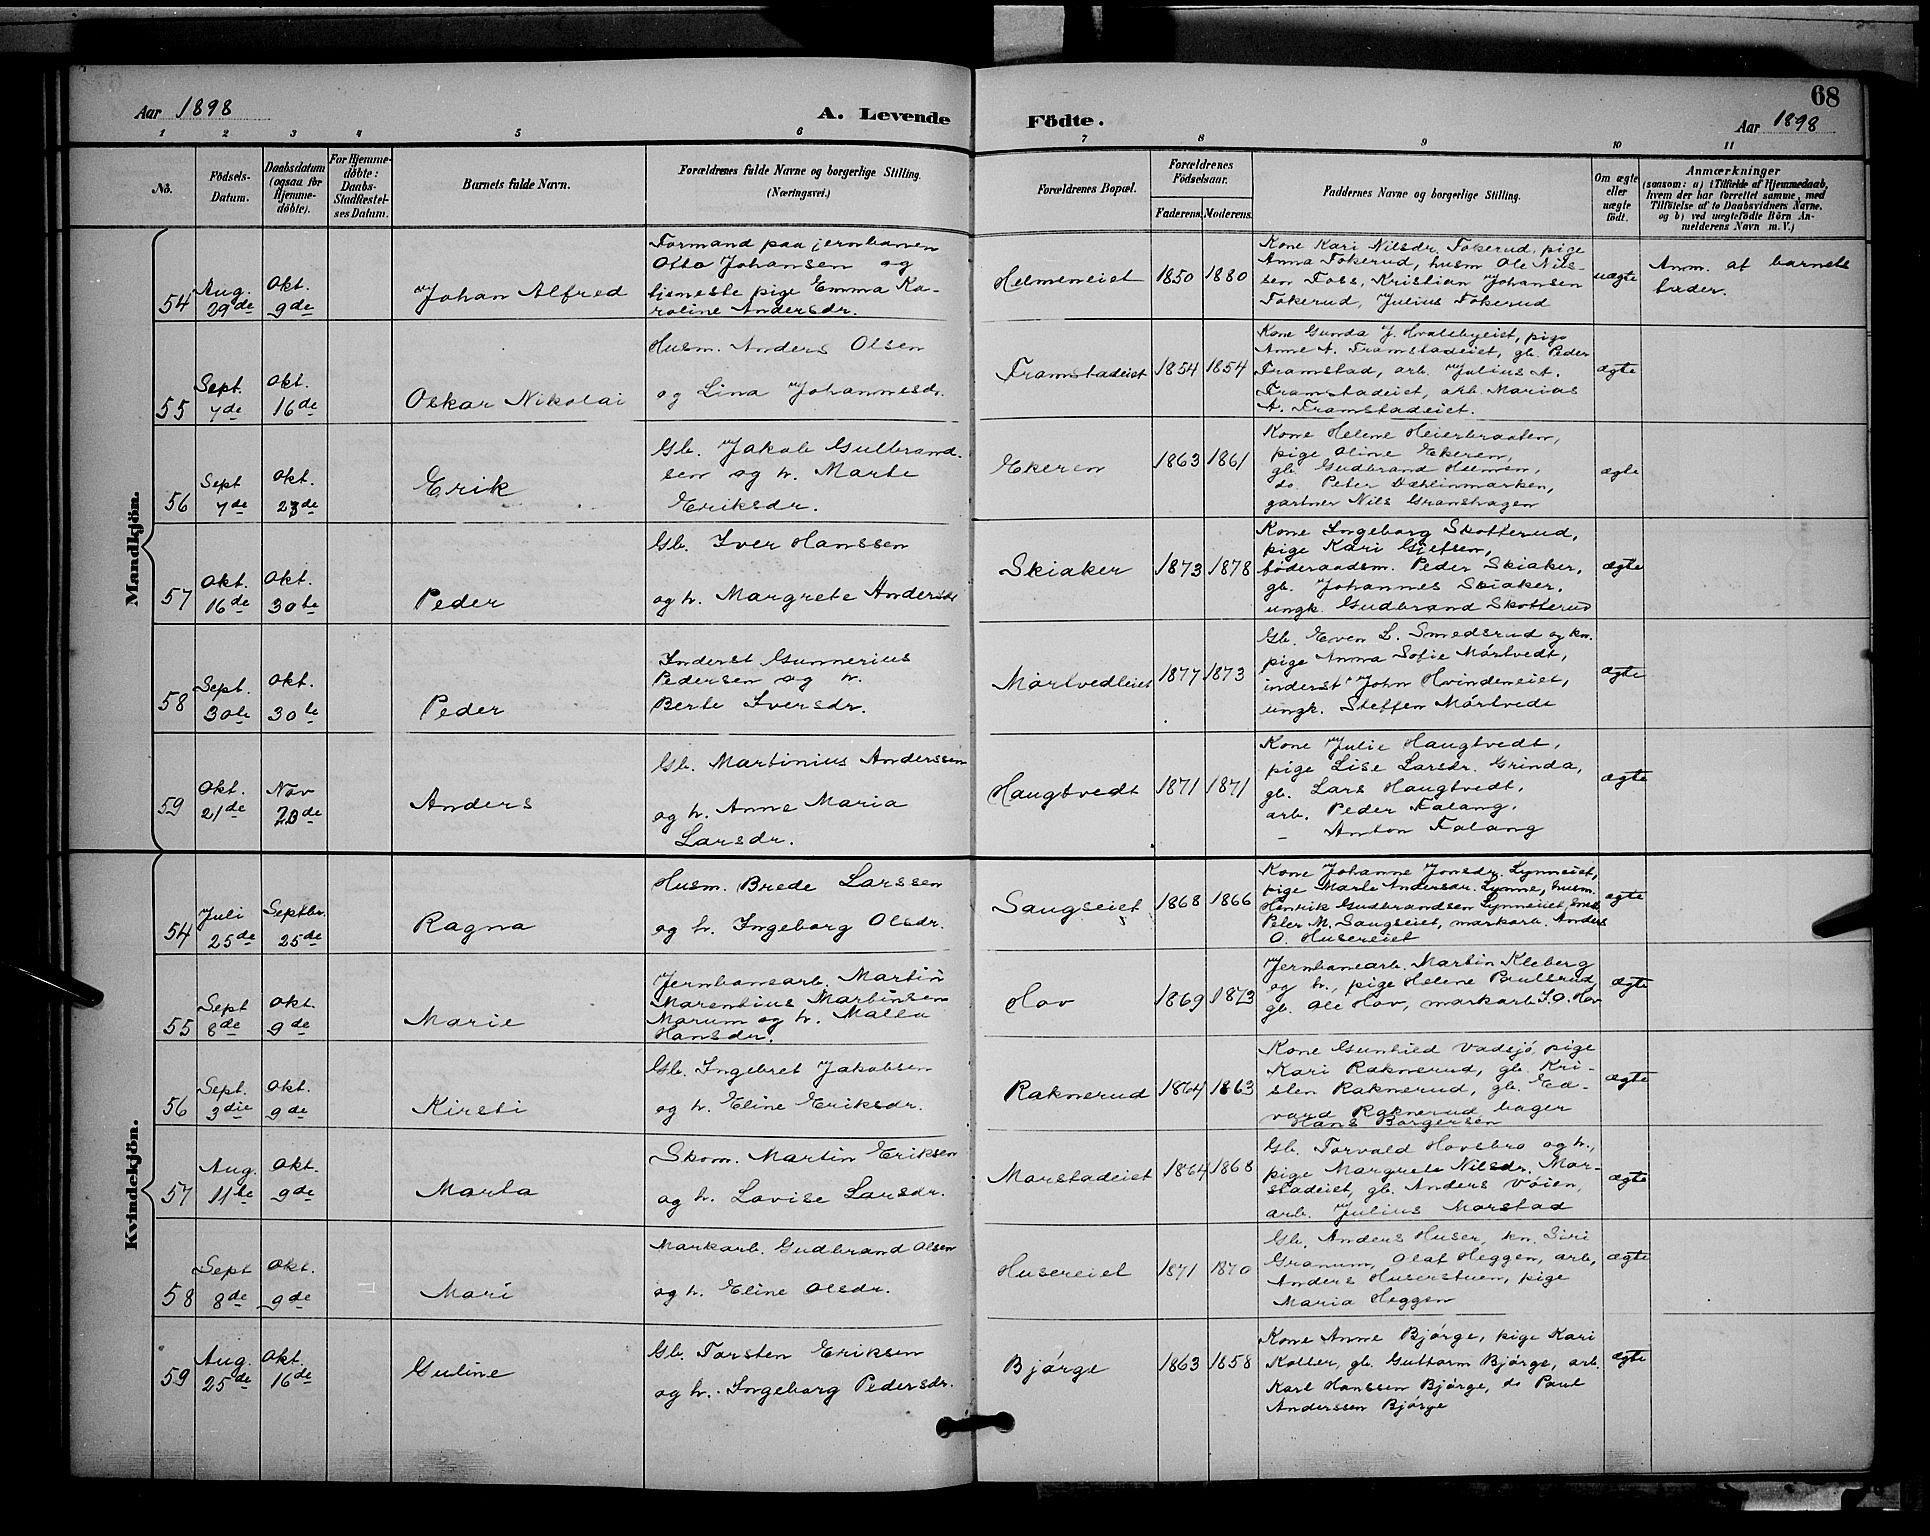 68
Aar 1898
A. Levende Födte.
Aar 1898
1 2 3 4 5 6 7 8 9 10 11
No.
Födsels-Datum.
Daabsdatum (ogsaa for Hjemme-döbte).
For Hjemme-döbte: Daabs-Stadfæstel-ses Datum.
Barnets fulde Navn.
Forældrenes fulde Navne og borgerlige Stilling. (Næringsvei.)
Forældrenes Bopæl.
Forældrenes Födselsaar.
Faderens. Moderens.
Faddernes Navne og borgerlige Stilling.
Om ægte eller uægte födt.
Anmærkninger
(saasom: a) i Tilfælde af Hjemmedaab,
hvem der har forrettet samme, med
Tilföielse af to Daabsvidners Navne,
og b) ved uægtefödte Börn An-
melderens Navn m. V.)
Mandkjön.
54
Aug. 29de
Okt. 9de
Johan Alfred
Formand paa jernbanen
Otto Johansen og
tjeneste pige Emma Ka-
roline Andersdr.
Helmeneiet
1850 1880
Kone Kari Nilsdr. Fokerud, pige
Anna Fokerud, husm. Ole Nils-
sen Foss, Kristian Johansen
Fokerud, Julius Fokerud
uægte
Anm. at barnets
fader.
55
Sept. 7de
Okt. 16de
Oskar Nikolai
Husm. Anders Olsen
og Lina Johannesdr.
Framstadeiet
1854 1854
Kone Gunda J. Hvalebyeiet, pige
Anne A. Framstadeiet, gb. Peder
Framstad, arb. Julius A.
Framstadeiet, arb. Marius
A. Framstadeiet.
ægte
56
Sept 7de
Okt. 23de
Erik
Gb. Jakob Gulbrand-
sen og h. Marte
Eriksdr.
Ekeren
1863 1861
Kone Helene Heierbraaten,
pige Oline Ekeren,
gb. Gudbrand Helmen,
do. Peter Dæhlinmarken,
gartner Nils Granshagen
ægte
57
Okt. 16de
Okt. 30te
Peder
Gb. Iver Hanssen
og h. Margrete Andersdr
Skiaker
1873 1878
Kone Ingeborg Skotterud,
pige Kari Gjefsen,
föderaadsm. Peder Skiaker,
gb. Johannes Skiaker,
ungk. Gudbrand Skotterud
ægte
58
Sept. 30te
Okt. 30te
Peder
Inderst Gunnerius
Pedersen og h.
Berte Iversdr.
Mörtvedteiet
1877 1873
Gb. Even L. Smedsrud og kn.
pige Anna Sofie Mörtvedt,
inderst John Hvindeneiet,
ungk. Steffen Mörtvedt
ægte
59
Okt. 21de
Nov 20de
Anders
Gb. Martinius Anderssen
og h. Anne Maria
Larsdr.
Haugtvedt
1871 1871
Kone Julie Haugtvedt,
pige Lise Larsdr. Grinda,
gb. Lars Haugtvedt,
arb. Peder Falang,
– Anton Falang
ægte
Kvindekjön.
54
Juli 25de
Septbr. 25de
Ragna
Husm. Brede Larssen
og h. Ingeborg Olsdr.
Saugseiet
1868 1866
Kone Johanne Jonsdr. Lynneiet,
pige Marte Andersdr. Lynne, husm.
Henrik Gudbrandsen Lynneiet,
Peter M. Saugseiet, markarb. Anders
O. Husereiet
ægte
55
Sept 8de
Okt 9de
Marie
Jernbanearb. Martin
Marentius Martinsen
Marum og h. Malla
Hansdr.
Hov
1869 1873
Jernbanearb. Martin Kleberg
og h., pige Helene Paulsrud,
gb. Ole Hov, markarb. I. O. Hov
ægte
56
Sept. 3die
Okt. 9de
Kirsti
Gb. Ingebret Jakobsen
og h. Eline Eriksdr.
Raknerud
1864 1863
Kone Gunhild Vadsjö, pige
Kari Raknerud, gb. Kri-
sten Raknerud, gb. Ed-
vard Raknerud, bager
Hans Borgersen
ægte
57
Aug. 11te
Okt. 9de
Marta
Skom. Martin Eriksen
og h. Lovise Larsdr.
Morstadeiet
1864 1868
Gb. Torvald Hovsbro og h.,
pige Margrete Nilsdr. Mor-
stadeiet, gb. Anders Voien,
arb. Julius Morstad
ægte
58
Sept 8de
Okt. 9de
Mari
Markarb. Gudbrand Olsen
og h. Eline Olsdr.
Husereiet
1871 1870
Gb. Anders Huser, kn. Siri
Granum, Olaf Heggen, arb.
Anders Huserstuen, pige
Maria Heggen
ægte
59
Aug. 25de
Okt. 16de
Guline
Gb. Torsten Eriksen
og h. Ingeborg Pedersdr.
Björge
1863 1858
Kone Anne Björge, pige Kari
Koller, gb. Guttorm Björge, arb.
Karl Hanssen Björge, do Paul
Anderssen Björge
ægte